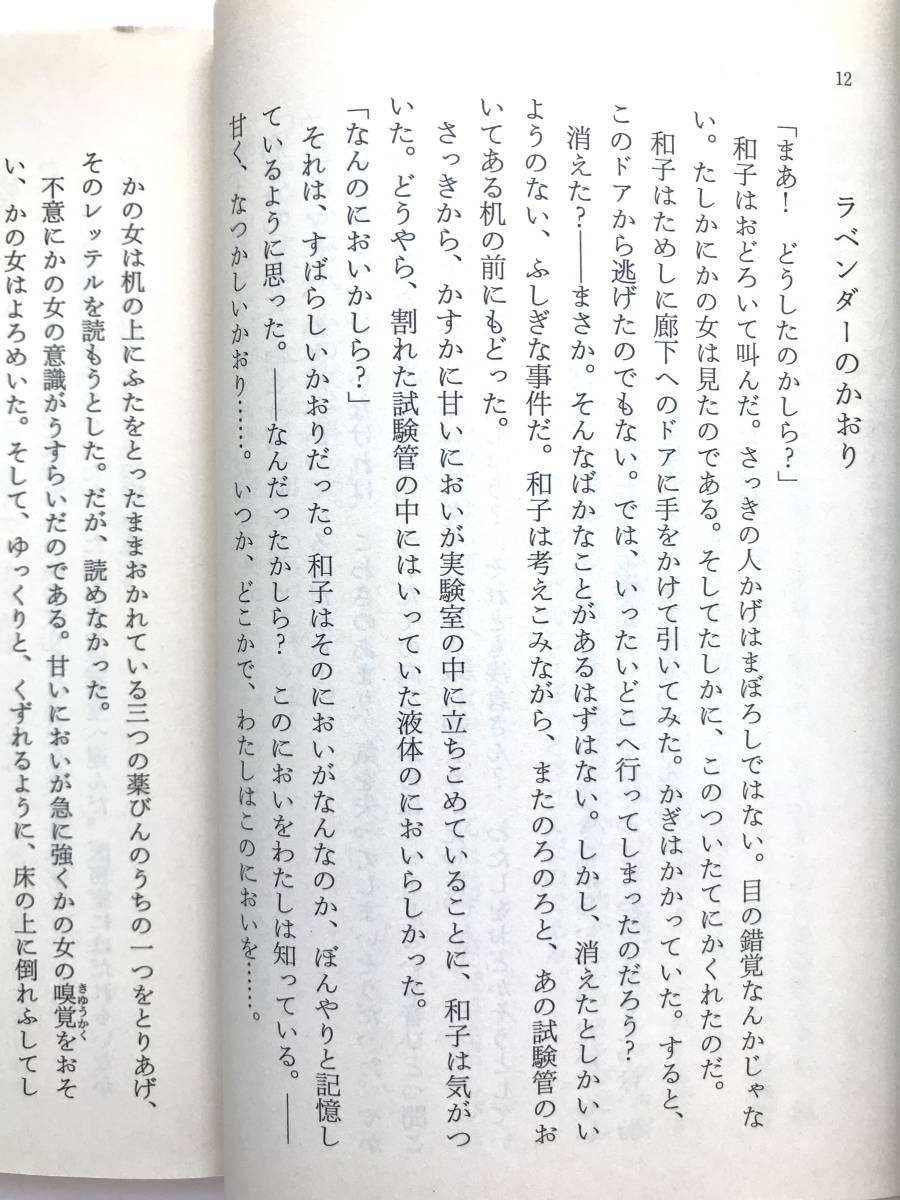 12
ラベンダーのかおり
「まあ!　どうしたのかしら?」
和子はおどろいて叫んだ。さっきの人かげはまぼろしではない。目の錯覚なんかじゃな
い。たしかにかの女は見たのである。そしてたしかに、このついたてにかくれたのだ。
和子はためしに廊下へのドアに手をかけて引いてみた。かぎはかかっていた。すると、
このドアから逃げたのでもない。では、いったいどこへ行ってしまったのだろう?
消えた?――まさか。そんなばかなことがあるはずはない。しかし、消えたとしかいい
ようのない、ふしぎな事件だ。和子は考えこみながら、またのろのろと、あの試験管のお
いてある机の前にもどった。
さっきから、かすかに甘いにおいが実験室の中に立ちこめていることに、和子は気がつ
いた。どうやら、割れた試験管の中にはいっていた液体のにおいらしかった。
「なんのにおいかしら?」
それは、すばらしいかおりだった。和子はそのにおいがなんなのか、ぼんやりと記憶し
ているように思った。――なんだったかしら?　このにおいをわたしは知っている。――
甘く、なつかしいかおり……。いつか、どこかで、わたしはこのにおいを……。
かの女は机の上にふたをとったままおかれている三つの薬びんのうちの一つをとりあげ、
そのレッテルを読もうとした。だが、読めなかった。
不意にかの女の意識がうすらいだのである。甘いにおいが急に強くかの女の嗅覚をおそ
きゆうかく
い、かの女はよろめいた。そして、ゆっくりと、くずれるように、床の上に倒れふしてし